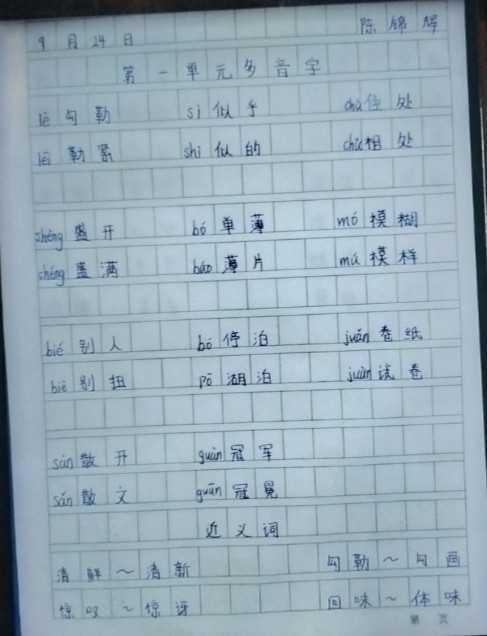 9月24日 陈锦辉
第一单元多音字
lè 勾勒 sì 似乎 chù 住处
lēi 勒紧 shì 似的 chǔ 相处
shèng 盛开 bó 单薄 mó 模糊
chéng 盖满 báo 薄片 mú 模样
bié 别人 bó 停泊 juǎn 卷纸
biè 别扭 pō 湖泊 juàn 试卷
sàn 散开 guàn 冠军
sǎn 散文 guān 冠冕
近义词
清鲜～清新 勾勒～勾画
惊叹～惊讶 回味～体味
第 页